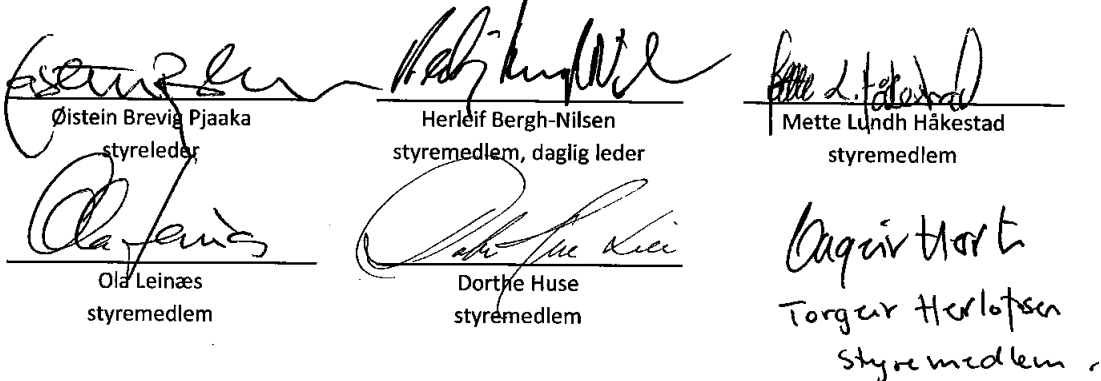 Øistein Brevig Pjaaka
styreleder
Herleif Bergh-Nilsen
styremedlem, daglig leder
Mette L. Håkestad
Mette Lundh Håkestad
styremedlem
Ola Leinæs
Ola Leinæs
styremedlem
Dorthe Huse
styremedlem
Torgeir Herlofsen
styremedlem